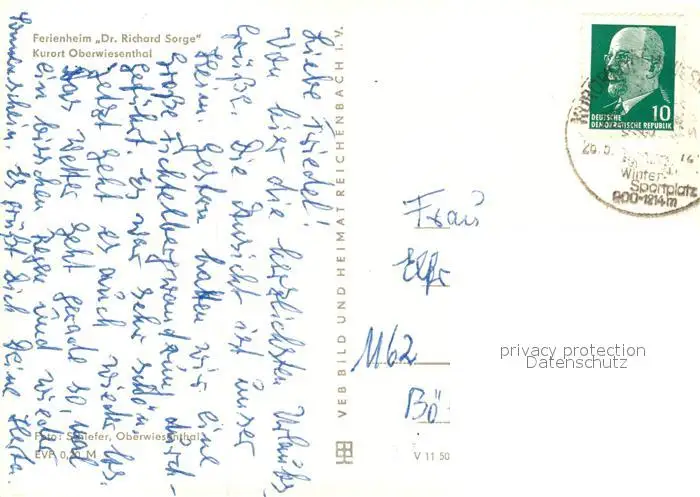 Ferienheim „Dr. Richard Sorge"
Kurort Oberwiesenthal
Liebe Friedel!
Von hier die herzlichsten Urlaubs
Grüße. Die Aussicht ist unser
Heim. Gestern hatten wir eine
große Fichtelbergwanderung durch-
geführt. Es war sehr schön
jetzt geht es auch wieder
Das Wetter geht gerade so, mal
ein bisschen Regen und wieder
Sonnenschein. Es grüßt Dich Deine Herta.
Foto: Schiefer, Oberwiesenthal
EVP 0,20 M
VEB BILD UND HEIMAT REICHENBACH I. V.
V 11 50
DEUTSCHE
DEMOKRATISCHE REPUBLIK
10
Winter-
Sportplatz
900-1214m
Frau
Elfr
1162
Bö
privacy protection
Datenschutz